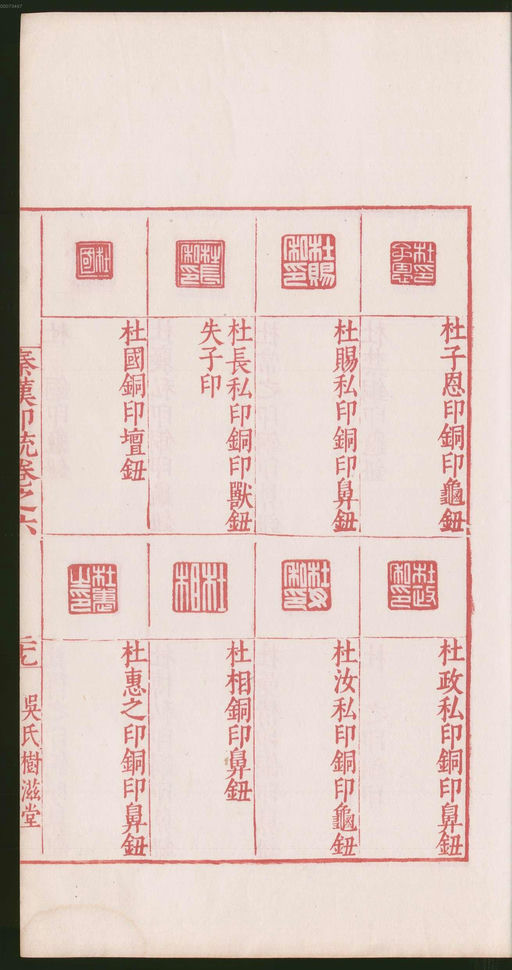 杜子恩印銅印龜鈕
杜賜私印銅印鼻鈕
杜長私印銅印獸鈕
失子印
杜國銅印壇鈕
杜政私印銅印鼻鈕
杜汝私印銅印龜鈕
杜相銅印鼻鈕
杜惠之印銅印鼻鈕
秦漢印統卷之六
吳氏樹滋堂
00073447